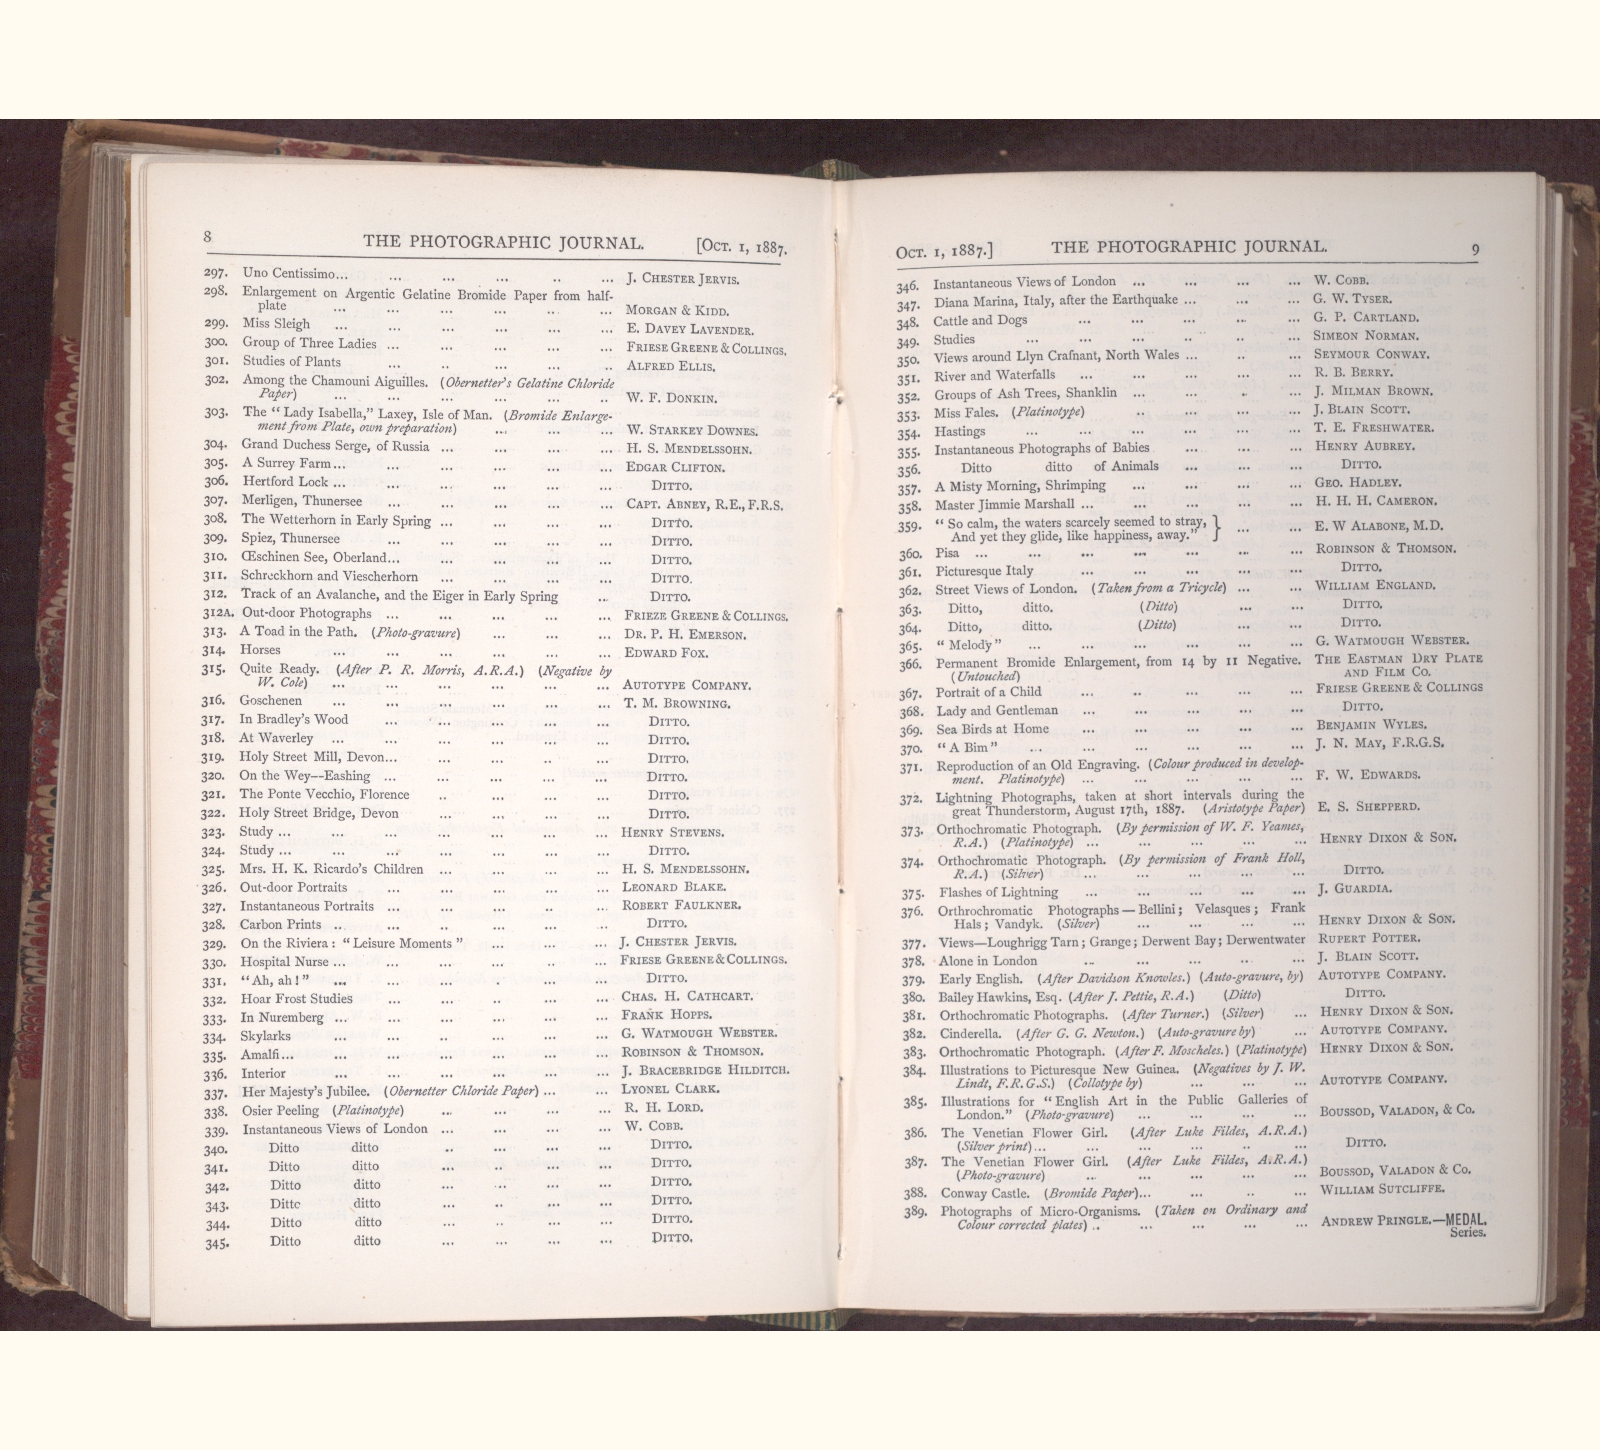 8 THE PHOTOGRAPHIC JOURNAL. [Oct. 1, 1887.
297. Uno Centissimo... ... ... ... .. ... J. Chester Jervis.
298. Enlargement on Argentic Gelatine Bromide Paper from half-
plate ... ... ... ... .. ... Morgan & Kidd.
299. Miss Sleigh ... ... ... ... ... ... E. Davey Lavender.
300. Group of Three Ladies ... ... ... ... ... Friese Greene & Collings.
301. Studies of Plants ... .. ... ... .. Alfred Ellis.
302. Among the Chamouni Aiguilles. (Obernetter's Gelatine Chloride
Paper) ... ... ... ... ... ... W. F. Donkin.
303. The "Lady Isabella," Laxey, Isle of Man. (Bromide Enlarge-
ment from Plate, own preparation) ... ... ... W. Starkey Downes.
304. Grand Duchess Serge, of Russia ... ... ... ... H. S. Mendelssohn.
305. A Surrey Farm... ... ... ... ... ... Edgar Clifton.
306. Hertford Lock ... ... ... ... ... ... Ditto.
307. Merligen, Thunersee ... ... ... ... ... Capt. Abney, R.E., F.R.S.
308. The Wetterhorn in Early Spring ... ... ... ... Ditto.
309. Spiez, Thunersee ... ... ... ... ... Ditto.
310. Œschinen See, Oberland... ... ... ... ... Ditto.
311. Schreckhorn and Viescherhorn ... ... ... ... Ditto.
312. Track of an Avalanche, and the Eiger in Early Spring ... Ditto.
312A. Out-door Photographs ... ... ... ... ... Frieze Greene & Collings.
313. A Toad in the Path. (Photo-gravure) ... ... ... Dr. P. H. Emerson.
314. Horses ... ... ... ... ... ... Edward Fox.
315. Quite Ready. (After P. R. Morris, A.R.A.) (Negative by
W. Cole) ... ... ... ... ... ... Autotype Company.
316. Goschenen ... ... ... ... ... ... T. M. Browning.
317. In Bradley's Wood ... ... ... ... ... Ditto.
318. At Waverley ... ... ... ... ... ... Ditto.
319. Holy Street Mill, Devon... ... ... ... ... Ditto.
320. On the Wey--Eashing ... ... ... ... ... Ditto.
321. The Ponte Vecchio, Florence .. ... ... ... Ditto.
322. Holy Street Bridge, Devon .. ... ... ... Ditto.
323. Study ... ... ... ... ... ... ... Henry Stevens.
324. Study ... ... ... ... ... ... ... Ditto.
325. Mrs. H. K. Ricardo's Children ... ... ... ... H. S. Mendelssohn.
326. Out-door Portraits ... ... ... ... ... Leonard Blake.
327. Instantaneous Portraits ... ... ... ... ... Robert Faulkner.
328. Carbon Prints .. ... ... ... .. ... Ditto.
329. On the Riviera : "Leisure Moments" ... ... ... J. Chester Jervis.
330. Hospital Nurse ... ... ... ... .. ... Friese Greene & Collings.
331. "Ah, ah!" ... ... ... . ... ... Ditto.
332. Hoar Frost Studies ... ... .. ... ... Chas. H. Cathcart.
333. In Nuremberg ... ... ... ... ... ... Frank Hopps.
334. Skylarks ... ... .. ... ... ... G. Watmough Webster.
335. Amalfi... ... ... ... ... ... ... Robinson & Thomson.
336. Interior ... ... ... ... ... ... J. Bracebridge Hilditch.
337. Her Majesty's Jubilee. (Obernetter Chloride Paper) ... ... Lyonel Clark.
338. Osier Peeling (Platinotype) ... ... ... ... R. H. Lord.
339. Instantaneous Views of London ... ... ... ... W. Cobb.
340. Ditto ditto .. ... ... ... Ditto.
341. Ditto ditto ... .. ... ... Ditto.
342. Ditto ditto ... ... ... ... Ditto.
343. Ditto ditto ... .. ... ... Ditto.
344. Ditto ditto ... .. ... ... Ditto.
345. Ditto ditto ... ... ... ... Ditto.
Oct. 1, 1887.] THE PHOTOGRAPHIC JOURNAL. 9
346. Instantaneous Views of London ... ... ... ... W. Cobb.
347. Diana Marina, Italy, after the Earthquake ... ... ... G. W. Tyser.
348. Cattle and Dogs ... ... ... ... ... G. P. Cartland.
349. Studies ... ... ... ... .. ... Simeon Norman.
350. Views around Llyn Crafnant, North Wales ... .. ... Seymour Conway.
351. River and Waterfalls ... ... ... ... ... R. B. Berry.
352. Groups of Ash Trees, Shanklin ... ... .. ... J. Milman Brown.
353. Miss Fales. (Platinotype) .. ... ... ... J. Blain Scott.
354. Hastings ... ... ... ... ... ... T. E. Freshwater.
355. Instantaneous Photographs of Babies ... ... ... Henry Aubrey.
356. Ditto ditto of Animals ... ... ... Ditto.
357. A Misty Morning, Shrimping ... ... ... ... Geo. Hadley.
358. Master Jimmie Marshall ... ... ... ... ... H. H. H. Cameron.
359. "So calm, the waters scarcely seemed to stray, } ... ... E. W Alabone, M.D.
And yet they glide, like happiness, away."
360. Pisa ... ... ... ... ... ... ... Robinson & Thomson.
361. Picturesque Italy ... ... ... ... ... Ditto.
362. Street Views of London. (Taken from a Tricycle) ... ... William England.
363. Ditto, ditto. (Ditto) ... ... Ditto.
364. Ditto, ditto. (Ditto) ... ... Ditto.
365. "Melody" ... ... ... ... ... ... G. Watmough Webster.
366. Permanent Bromide Enlargement, from 14 by 11 Negative. The Eastman Dry Plate
(Untouched) and Film Co.
367. Portrait of a Child ... .. ... ... ... Friese Greene & Collings
368. Lady and Gentleman ... ... ... ... ... Ditto.
369. Sea Birds at Home ... ... ... ... ... Benjamin Wyles.
370. "A Bim" ... ... ... ... ... ... J. N. May, F.R.G.S.
371. Reproduction of an Old Engraving. (Colour produced in develop-
ment. Platinotype) ... ... ... ... ... F. W. Edwards.
372. Lightning Photographs, taken at short intervals during the
great Thunderstorm, August 17th, 1887. (Aristotype Paper) E. S. Shepperd.
373. Orthochromatic Photograph. (By permission of W. F. Yeames,
R.A.) (Platinotype) ... ... ... ... ... Henry Dixon & Son.
374. Orthochromatic Photograph. (By permission of Frank Holl,
R.A.) (Silver) ... ... ... ... ... Ditto.
375. Flashes of Lightning ... ... ... ... ... J. Guardia.
376. Orthrochromatic Photographs — Bellini; Velasques; Frank
Hals; Vandyk. (Silver) ... ... ... ... Henry Dixon & Son.
377. Views—Loughrigg Tarn; Grange; Derwent Bay; Derwentwater Rupert Potter.
378. Alone in London .. ... ... ... ... J. Blain Scott.
379. Early English. (After Davidson Knowles.) (Auto-gravure, by) Autotype Company.
380. Bailey Hawkins, Esq. (After J. Pettie, R.A.) (Ditto) Ditto.
381. Orthochromatic Photographs. (After Turner.) (Silver) ... Henry Dixon & Son.
382. Cinderella. (After G. G. Newton.) (Auto-gravure by) ... Autotype Company.
383. Orthochromatic Photograph. (After F. Moscheles.) (Platinotype) Henry Dixon & Son.
384. Illustrations to Picturesque New Guinea. (Negatives by J. W.
Lindt, F.R.G.S.) (Collotype by) ... ... ... Autotype Company.
385. Illustrations for "English Art in the Public Galleries of
London." (Photo-gravure) ... ... ... ... Boussod, Valadon, & Co.
386. The Venetian Flower Girl. (After Luke Fildes, A.R.A.)
(Silver print)... ... ... ... .. ... Ditto.
387. The Venetian Flower Girl. (After Luke Fildes, A.R.A.)
(Photo-gravure) ... ... ... ... ... Boussod, Valadon & Co.
388. Conway Castle. (Bromide Paper)... ... .. ... William Sutcliffe.
389. Photographs of Micro-Organisms. (Taken on Ordinary and
Colour corrected plates) .. ... ... ... ... Andrew Pringle.—MEDAL.
Series.